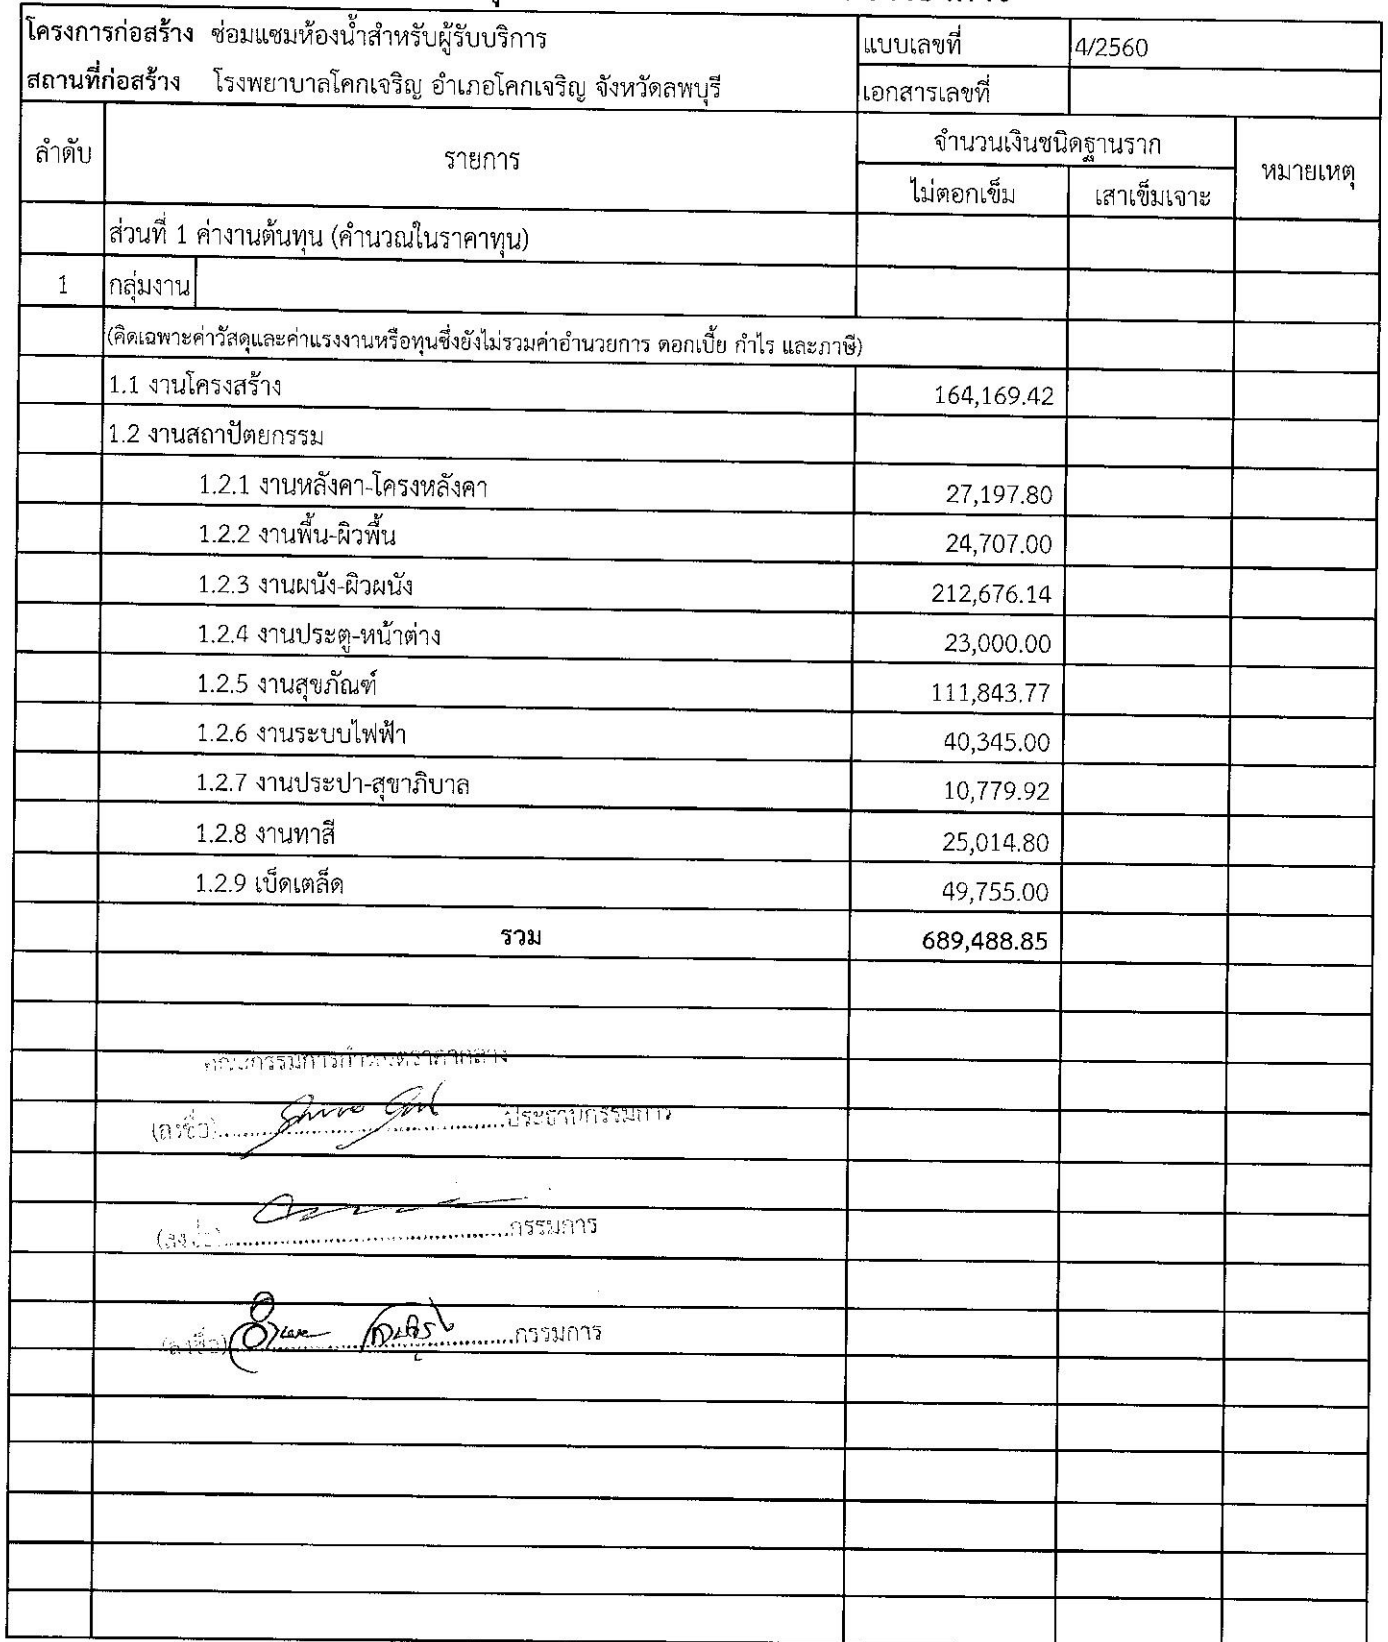 โครงการก่อสร้าง ซ่อมแซมห้องน้ำสำหรับผู้รับบริการ แบบเลขที่ 4/2560
สถานที่ก่อสร้าง โรงพยาบาลโคกเจริญ อำเภอโคกเจริญ จังหวัดลพบุรี เอกสารเลขที่
ลำดับ รายการ จำนวนเงินชนิดฐานราก หมายเหตุ
ไม่ตอกเข็ม เสาเข็มเจาะ
ส่วนที่ 1 ค่างานต้นทุน (คำนวณในราคาทุน)
1 กลุ่มงาน
(คิดเฉพาะค่าวัสดุและค่าแรงงานหรือทุนซึ่งยังไม่รวมค่าอำนวยการ ดอกเบี้ย กำไร และภาษี)
1.1 งานโครงสร้าง 164,169.42
1.2 งานสถาปัตยกรรม
1.2.1 งานหลังคา-โครงหลังคา 27,197.80
1.2.2 งานพื้น-ผิวพื้น 24,707.00
1.2.3 งานผนัง-ผิวผนัง 212,676.14
1.2.4 งานประตู-หน้าต่าง 23,000.00
1.2.5 งานสุขภัณฑ์ 111,843.77
1.2.6 งานระบบไฟฟ้า 40,345.00
1.2.7 งานประปา-สุขาภิบาล 10,779.92
1.2.8 งานทาสี 25,014.80
1.2.9 เบ็ดเตล็ด 49,755.00
รวม 689,488.85
คณะกรรมการกำหนดราคากลาง
(ลงชื่อ)..............................ประธานกรรมการ
(ลงชื่อ)..............................กรรมการ
(ลงชื่อ)..............................กรรมการ